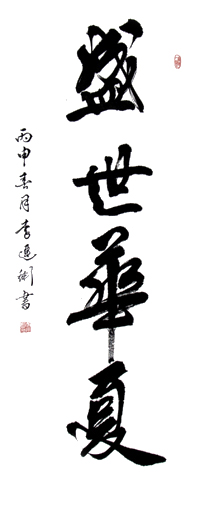 盛世華夏
丙申春月李連衡書